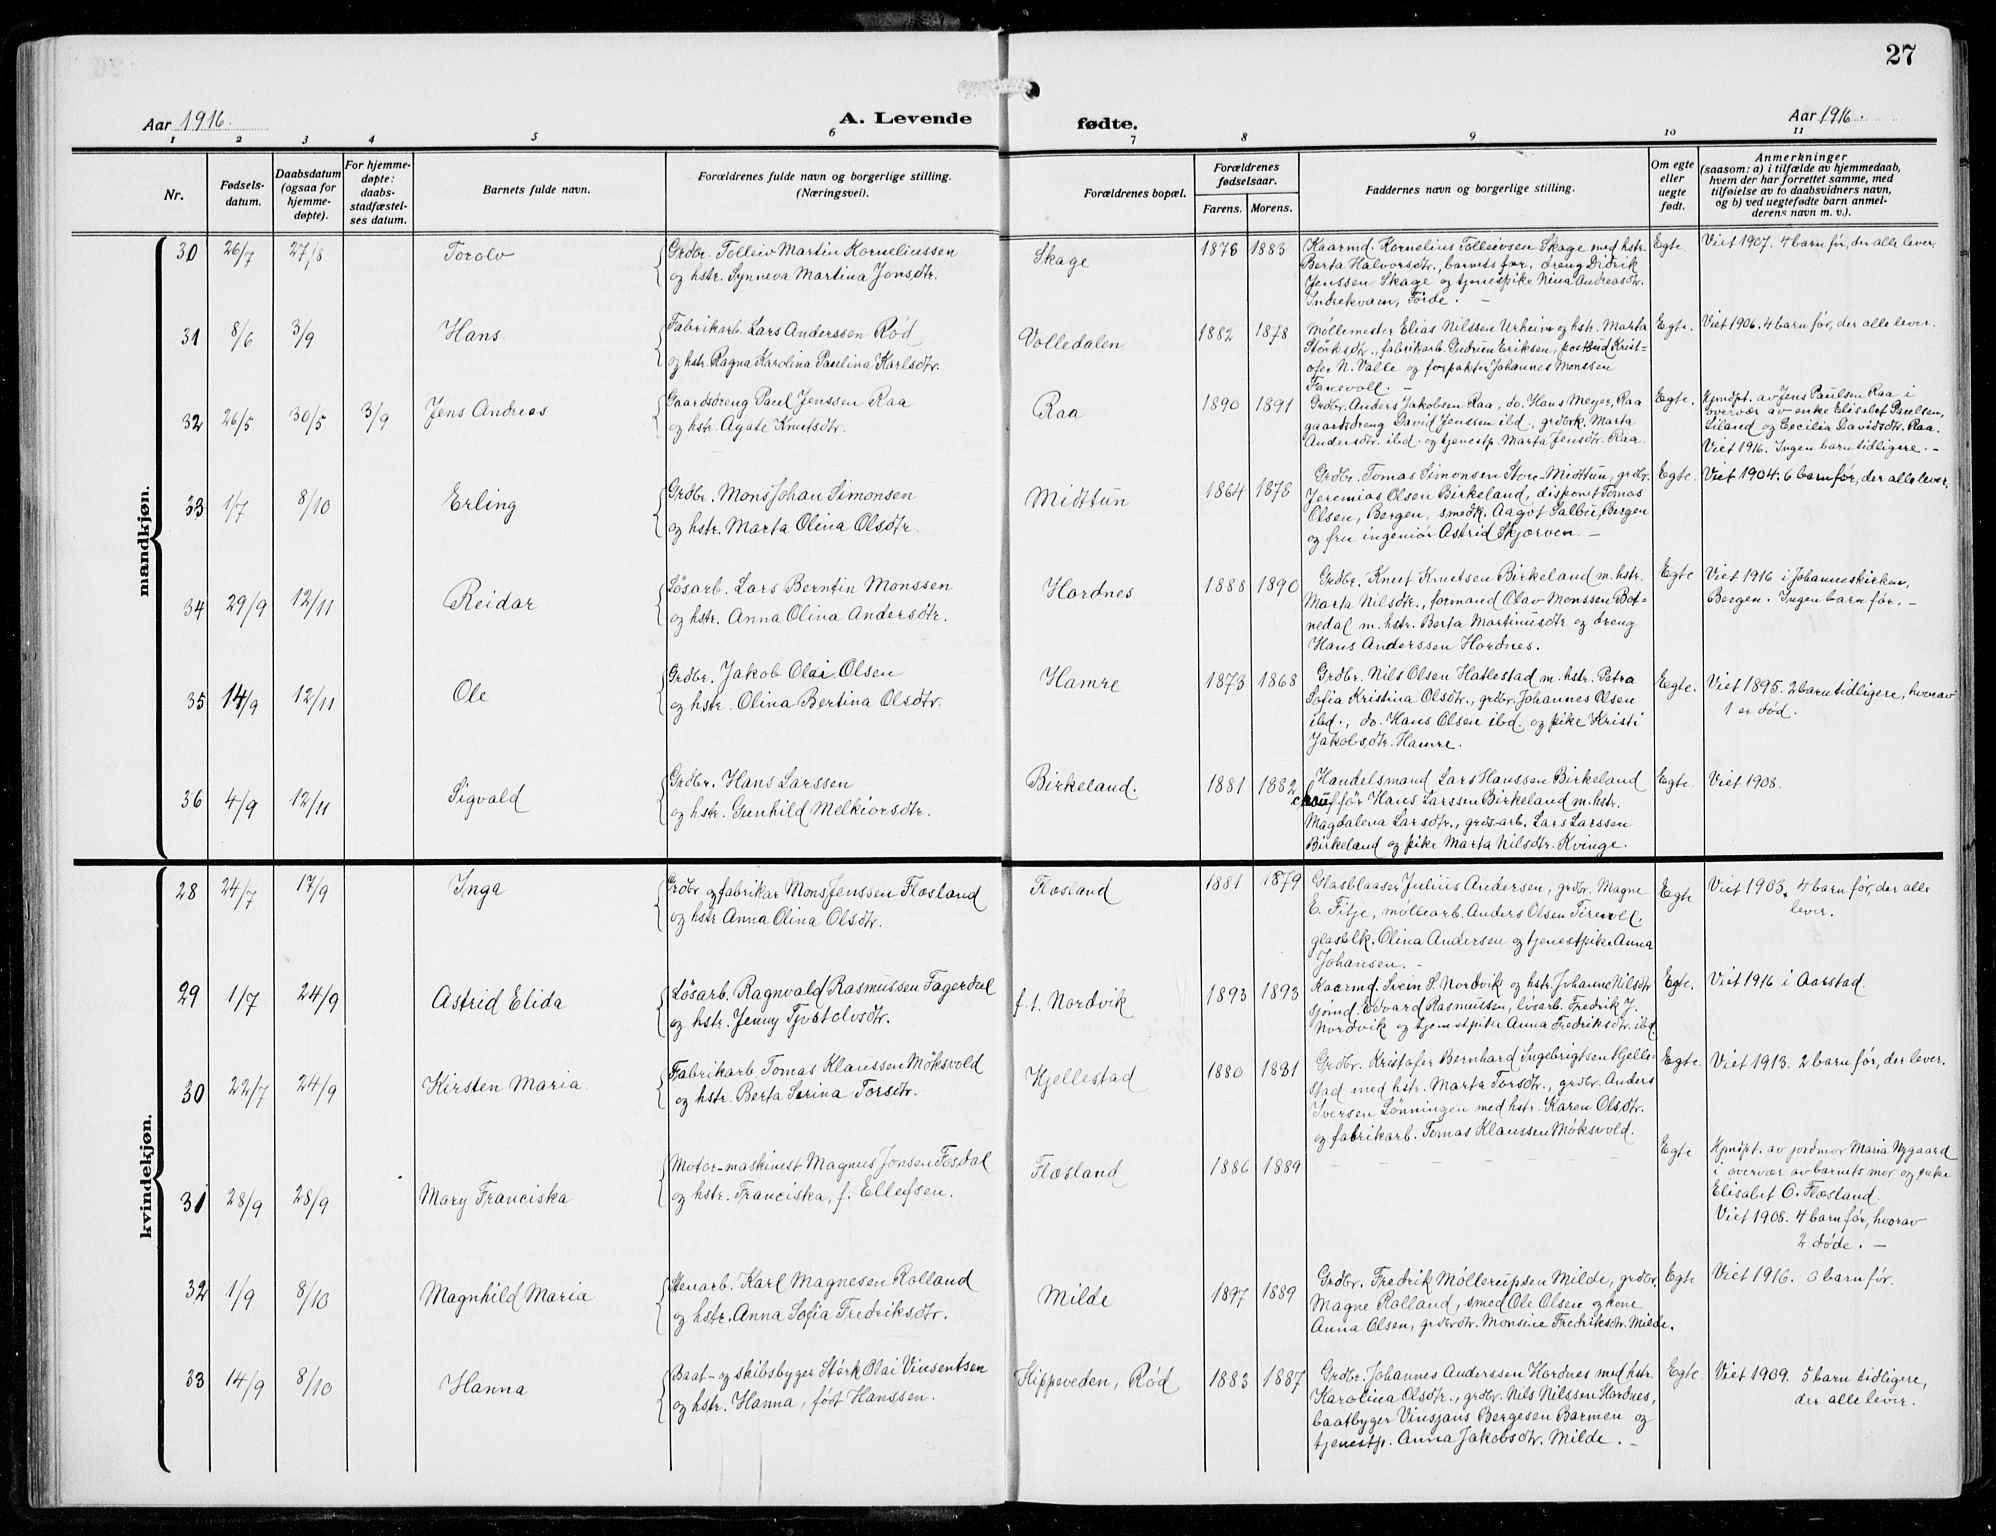 27
Aar 1916.
A. Levende fødte.
Aar 1916.
1 2 3 4 5 6 7 8 9 10 11
Nr.
Fødsels-
datum.
Daabsdatum
(ogsaa for
hjemme-
døpte).
For hjemme-
døpte:
daabs-
stadfæstel-
ses datum.
Barnets fulde navn.
Forældrenes fulde navn og borgerlige stilling.
(Næringsvei).
Forældrenes bopæl.
Forældrenes
fødselsaar.
Farens. Morens.
Faddernes navn og borgerlige stilling.
Om egte
eller
uegte
født.
Anmerkninger
(saasom: a) i tilfælde av hjemmedaab,
hvem der har forrettet samme, med
tilføielse av to daabsvidners navn,
og b) ved uegtefødte barn anmel-
derens navn m. v.).
mandkjøn.
30 26/7 27/8 Torolv
Grdbr. Tolleiv Martin Korneliussen
og hstr. Synneva Martina Jonsdtr.
Skage 1876 1883
Kaarmd. Kornelius Tolleivsen Skage med hstr.
Berta Halvorsdtr., barnets far, dreng Didrik
Jenssen Skage og tjenestpike Nina Andreasdtr.
Indrekvam, Førde. –
Egte. Viet 1907. 4 barn før, der alle lever.
31 8/6 3/9 Hans.
Fabrikarb. Lars Anderssen Rød
og hstr. Ragna Karolina Paulina Karlsdtr.
Volledalen 1882 1878
Møllemester Elias Nilssen Urheim og hstr. Marta
Størksdtr., fabrikarb. Gudrun Eriksen, postbud Krist-
ofer N. Valle og forpakter Johannes Monssen
Fanevoll. –
Egte. Viet 1906. 4 barn før, der alle lever.
32 26/5 30/5 3/9 Jens Andreas
Gaardsdreng Paul Jenssen Raa
og hstr. Agate Knutsdtr.
Raa 1890 1891
Grdbr. Anders Jakobsen Raa, do. Hans Meyer, Raa
gaardsdreng David Jenssen ibd., grdbrk. Marta
Andersdtr. ibd. og tjenestp. Marta Jensdtr. Raa.
Egte. Hjmdpt. av Jens Paulsen Raa i
overvær av enke Elisabet Paulsen,
Liland og Cecilia Davidsdtr. Raa.
Viet 1916. Ingen barn tidligere. –
33 1/7 8/10 Erling
Grdbr. Mons Johan Simonsen
og hstr. Marta Olina Olsdtr.
Midttun 1864 1878
Grdbr. Tomas Simonsen Store-Midttun, grdbr.
Jeremias Olsen Birkeland, disponet Tomas
Olsen, Bergen, smedk. Aagot Salbu, Bergen
og fru ingeniør Astrid Skjerven. –
Egte Viet 1904. 6 barn før, der alle lever.
34 29/9 12/11 Reidar
Løsarb. Lars Berntin Monssen
og hstr. Anna Olina Andersdtr.
Hordnes 1888 1890
Grdbr. Knut Knutsen Birkeland m. hstr.
Marta Nilsdtr., formand Olav Monssen Bot-
nedal m. hstr. Berta Martinusdtr og dreng
Hans Anderssen Hordnes.
Egte Viet 1916 i Johanneskirken,
Bergen. Ingen barn før. –
35 14/9 12/11 Ole
Grdbr. Jakob Olai Olsen
og hstr. Olina Bertina Olsdtr.
Hamre 1873 1868
Grdbr. Nils Olsen Hatlestad m. hstr. Petra
Sofia Kristina Olsdtr., grdbr. Johannes Olsen
ibd., do. Hans Olsen ibd. og pike Kristi
Jakobsdtr. Hamre.
Egte. Viet 1895. 2 barn tidligere, hvorav
1 er død.
36 4/9 12/11 Sigvald
Grdbr. Hans Larssen
og hstr. Gunhild Melkiorsdtr.
Birkeland. 1881 1882
Handelsmand Lars Hanssen Birkeland
chauffør Hans Larssen Birkeland m. hstr.
Magdalena Larsdtr., grds-arb. Lars Larssen
Birkeland og pike Marta Nilsdtr. Kvinge.
Egte. Viet 1908.
kvindekjøn.
28 24/7 17/9 Inga
Grdbr og fabrikar Mons Jenssen Flæsland
og hstr Anna Olina Olsdtr.
Flæsland 1881 1879
Glasblaaser Julius Andersen, grdbr. Magne
E. Fitje, møllearb. Anders Olsen Tirevoll,
glasblk. Olina Andersen og tjenestpike Anna
Johansen. –
Egte Viet 1903. 4 barn før, der alle
lever.
29 1/7 24/9 Astrid Elida
Løsarb. Ragnvald Rasmussen Fagerdal
og hstr. Jenny Tjostelvsdtr.
f. t. Nordvik 1893 1893
Kaarmd. Svein S. Nordvik og hstr. Johanne Nilsdtr
sjømd. Edvard Rasmussen, løsarb. Fredrik J.
Nordvik og tjenestpike Anna Fredriksdtr. ibd.
Egte. Viet 1916 i Aarstad.
30 22/7 24/9 Kirsten Maria.
Fabrikarb. Tomas Klaussen Møksvold
og hstr. Berta Serina Torsdtr.
Hjellestad 1880 1881
Grdbr. Kristofer Bernhard Ingebrigtsen Hjelle-
stad med hstr. Marta Torsdtr., grdbr. Anders
Iversen Lønningen med hstr. Karen Olsdtr.
og fabrikarb. Tomas Klaussen Møksvold.
Egte. Viet 1913. 2 barn før, der lever.
31 28/9 28/9 Mary Franciska
Motor-maskinist Magnus Jonsen Fosdal
og hstr. Franciska, f. Ellefsen.
Flæsland 1886 1889
Egte Hjmdpt. av jordmor Maria Nygaard
i overvær av barnets mor og pike
Elisabet O. Flæsland.
Viet 1908. 4 barn før, hvorav
2 døde. –
32 1/9 8/10 Magnhild Maria
Stenarb. Karl Magnesen Rolland
og hstr. Anna Sofia Fredriksdtr.
Milde 1897 1889
Grdbr. Fredrik Møllerupsen Milde, grdbr.
Magne Rolland, smed Ole Olsen og kone
Anna Olsen, grdbrdtr. Monsine Fredriksdtr. Milde.
Egte Viet 1916. 0 barn før.
33 14/9 8/10 Hanna
Baat- og skibsbyger Størk Olai Vinsentsen
og hstr. Hanna, født Hanssen.
Hippeveden, Rød 1883 1887
Grdbr. Johannes Anderssen Hordnes med hstr.
Karolina Olsdtr., grdbr. Nils Nilssen Hordnes,
baatbyger Vinsjans Bergesen Barmen og
tjenestp. Anna Jakobsdtr. Milde. –
Egte. Viet 1909. 5 barn tidligere,
der alle lever.